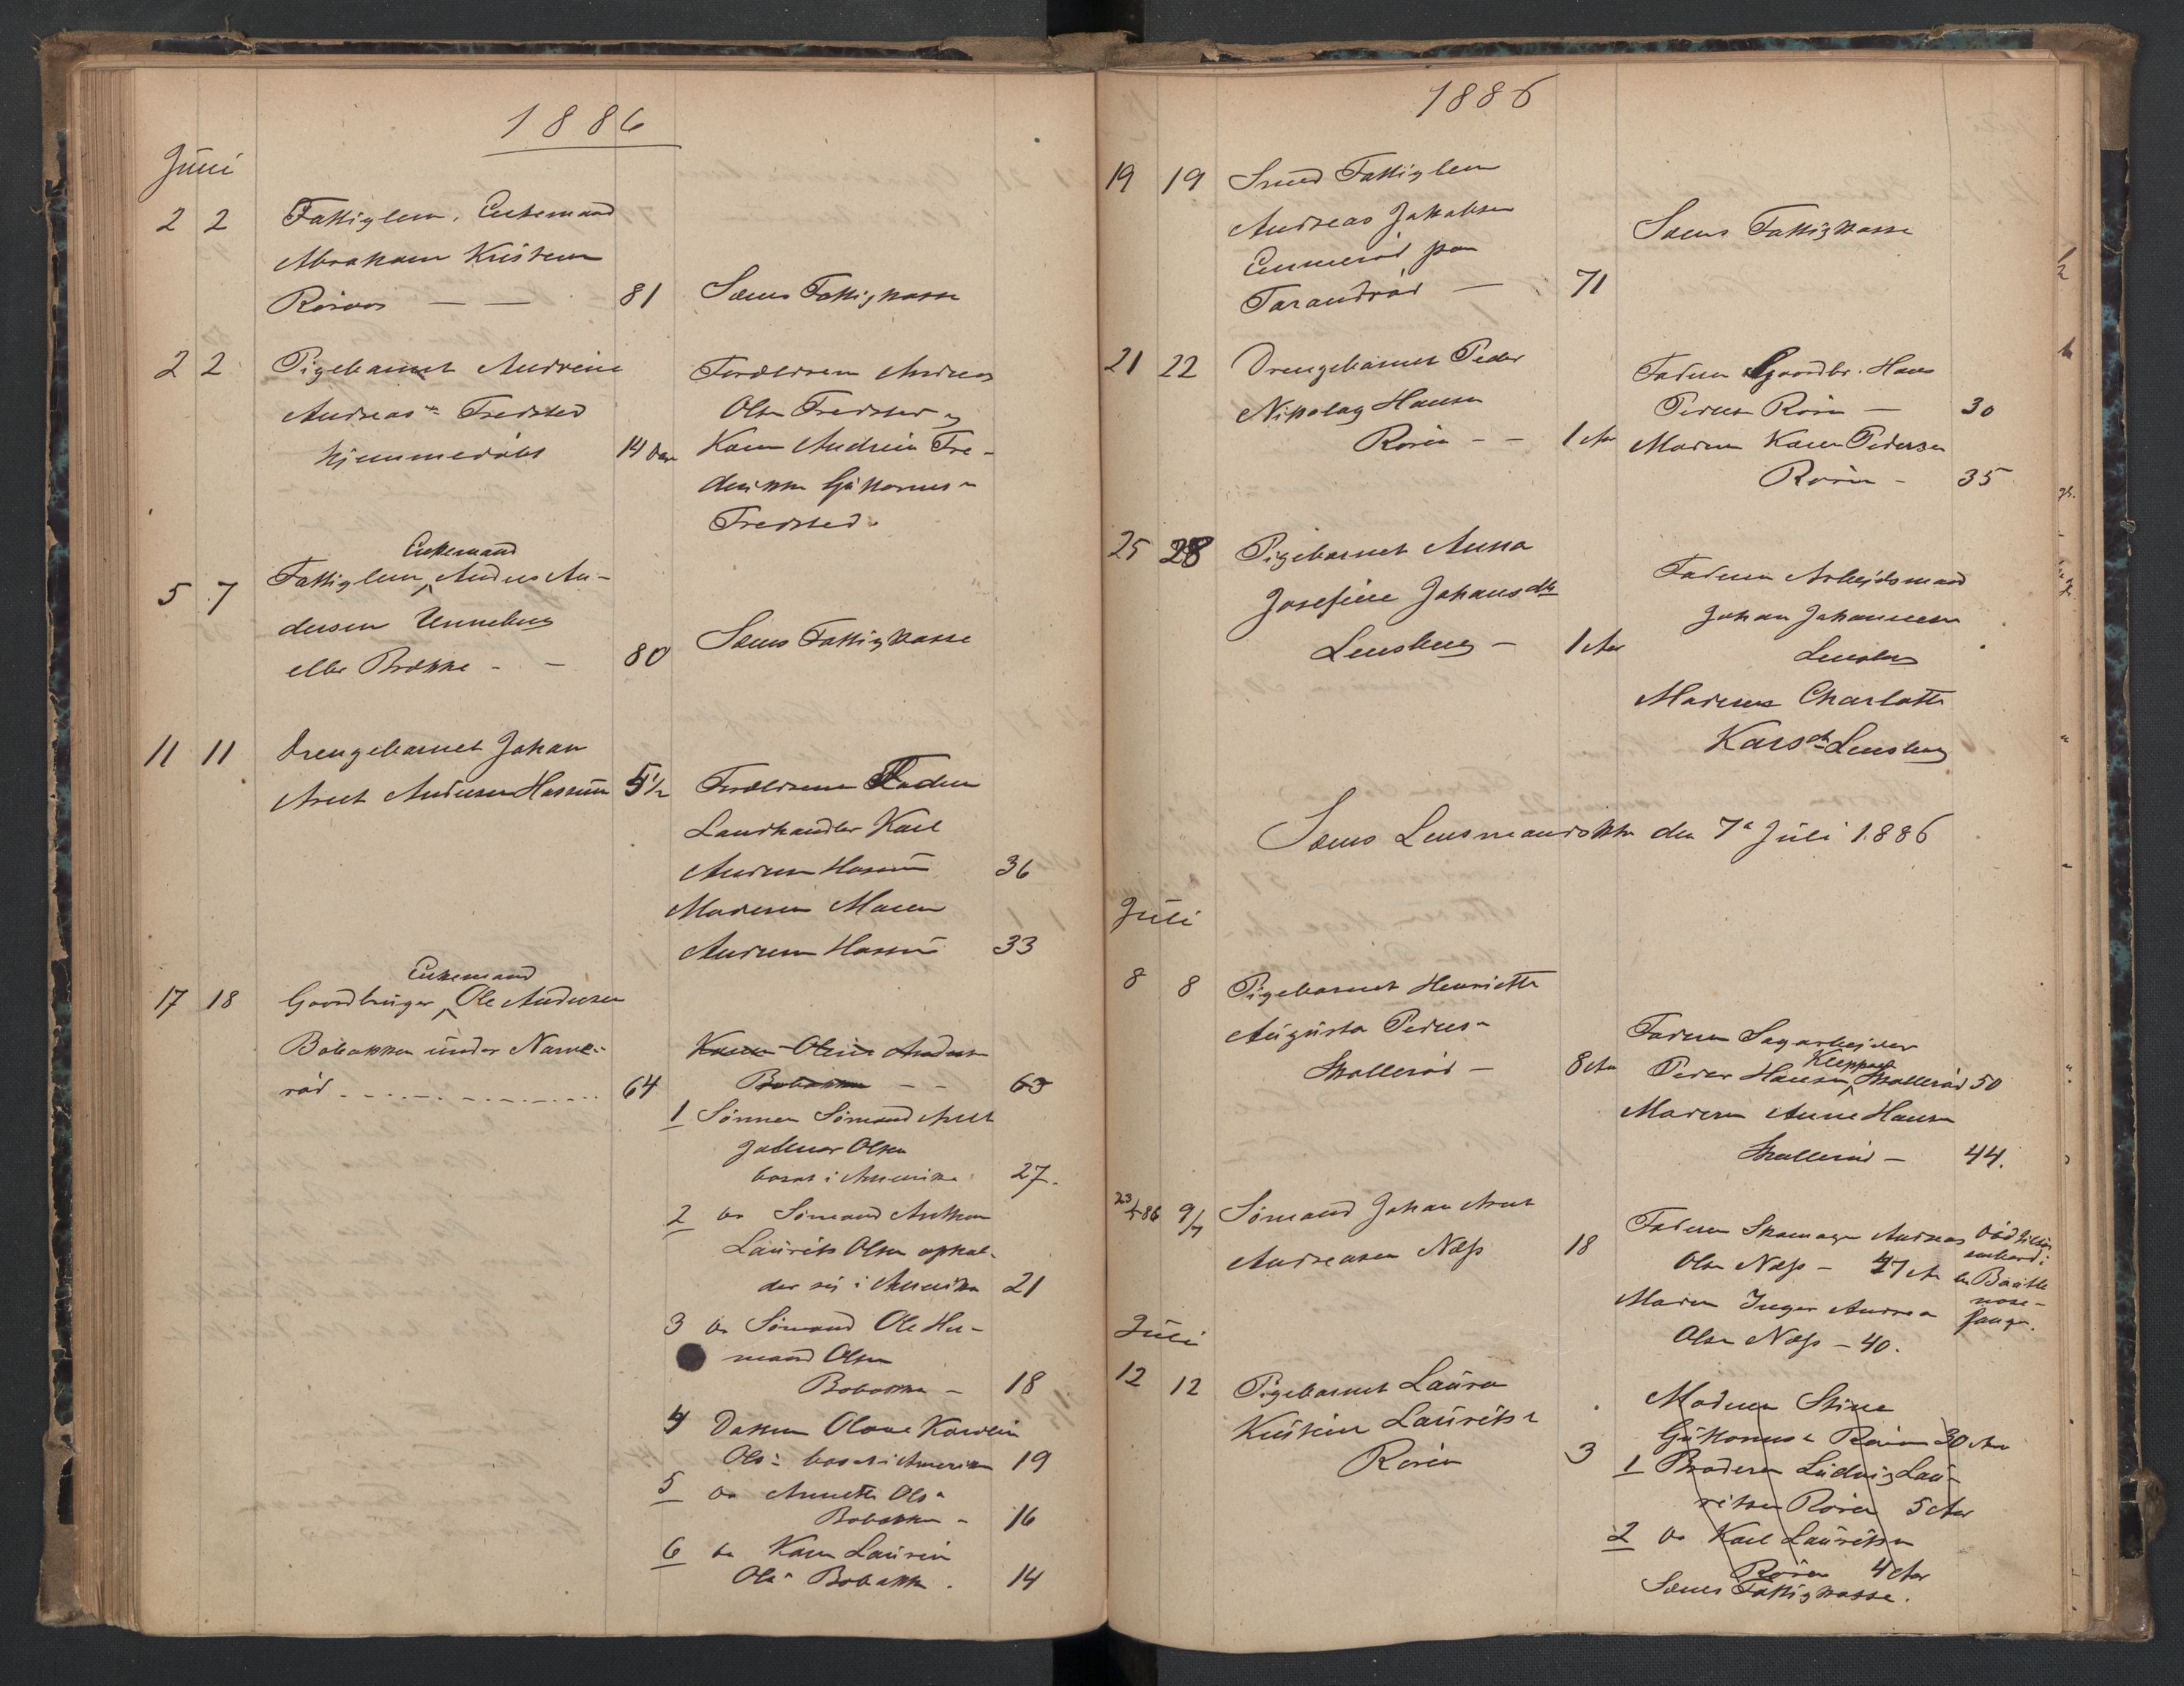 1886
Juni
2 2 Fattiglem, Enkemand
Abraham Kristensen
Röraas — — 81 Sems Fattigkasse
2 2 Pigebarnet Andrine
Andreasdtr Fredsted
hjemmedöbt 14 Dage
Foreldrene Andreas
Olsen Fredsted og
Karen Andrine Fre-
derikke Guttormsdtr
Fredsted.
Enkemand
5 7 Fattiglem Anders An-
dersen Unneberg
eller Brekke - — 80 Sems Fattigkasse
11 11 Drengebarnet Johan
Arnt Andersen Hassum 5 1/2
Foreldrene Faderen
Landhandler Karl
Andersen Hassum 36
Moderen Maren
Andersen Hassum 33
Enkemand
17 18 Gaardbruger Ole Andersen
Bobakken under Narve-
röd 64
Karen Oline Anders
Bobakken - - 63
1 Sönnen Sömand Arnt
Hjalmar Olsen
bosat i Amerika 27.
2 do Sömand Anthon
Laurits Olsen ophol-
der sig i Amerika 21
3 do Sömand Ole Her-
mand Olsen
Bobakken — 18
4 Datteren Olava Karoline
Olsdtr bosat i Amerika 19
5 do Annette Olsdtr
Bobakken - 16
6 do Karen Laurine
Olsdtr Bobakken . 14
1886
19 19 Smed Fattiglem
Andreas Jakobsen
Gunneröd paa
Tarandröd — 71
Sems Fattigkasse
21 22 Drengebarnet Peder
Nikolay Hansen
Rören - - 1 Aar
Faderen Gaardbr. Hans
Pedersen Rören — 30
Moderen Karen Pedersen
Rören - 35
25 28 Pigebarnet Anna
Josefine Johansdtr
Lensberg — 1 Aar
Faderen Arbejdsmand
Johan Johannesen
Lensberg
Moderen Charlotte
Karlsdtr Lensberg
Sems Lensmandsktr den 7de Juli 1886
Juli
8 8 Pigebarnet Henriette
Augusta Pedersdtr
Skalleröd — 8 Aar
Faderen Sagarbejder
Kleppan
Peder Hansen Skalleröd 50
Moderen Anne Hansen
Skalleröd — 44.
23/4 86 9/7 Sömand Johan Arnt
Andreasen Næss 18
Faderen Skomager Andreas
Olsen Næss — 47 Aar
Moderen Inger Andrea
Olsen Næss — 40.
Död Hilser
ombord i
en Baatle
nose-
fanger.
Juli
12 12 Pigebarnet Laura
Kristine Lauritsdtr
Rören 3
Moderen Stine
Guttormsdtr Rören 30 Aar
1 Broderen Ludvig Lau-
ritsen Rören 5 Aar
2 do Karl Lauritsen
Rören 4 Aar
Sems Fattigkasse.